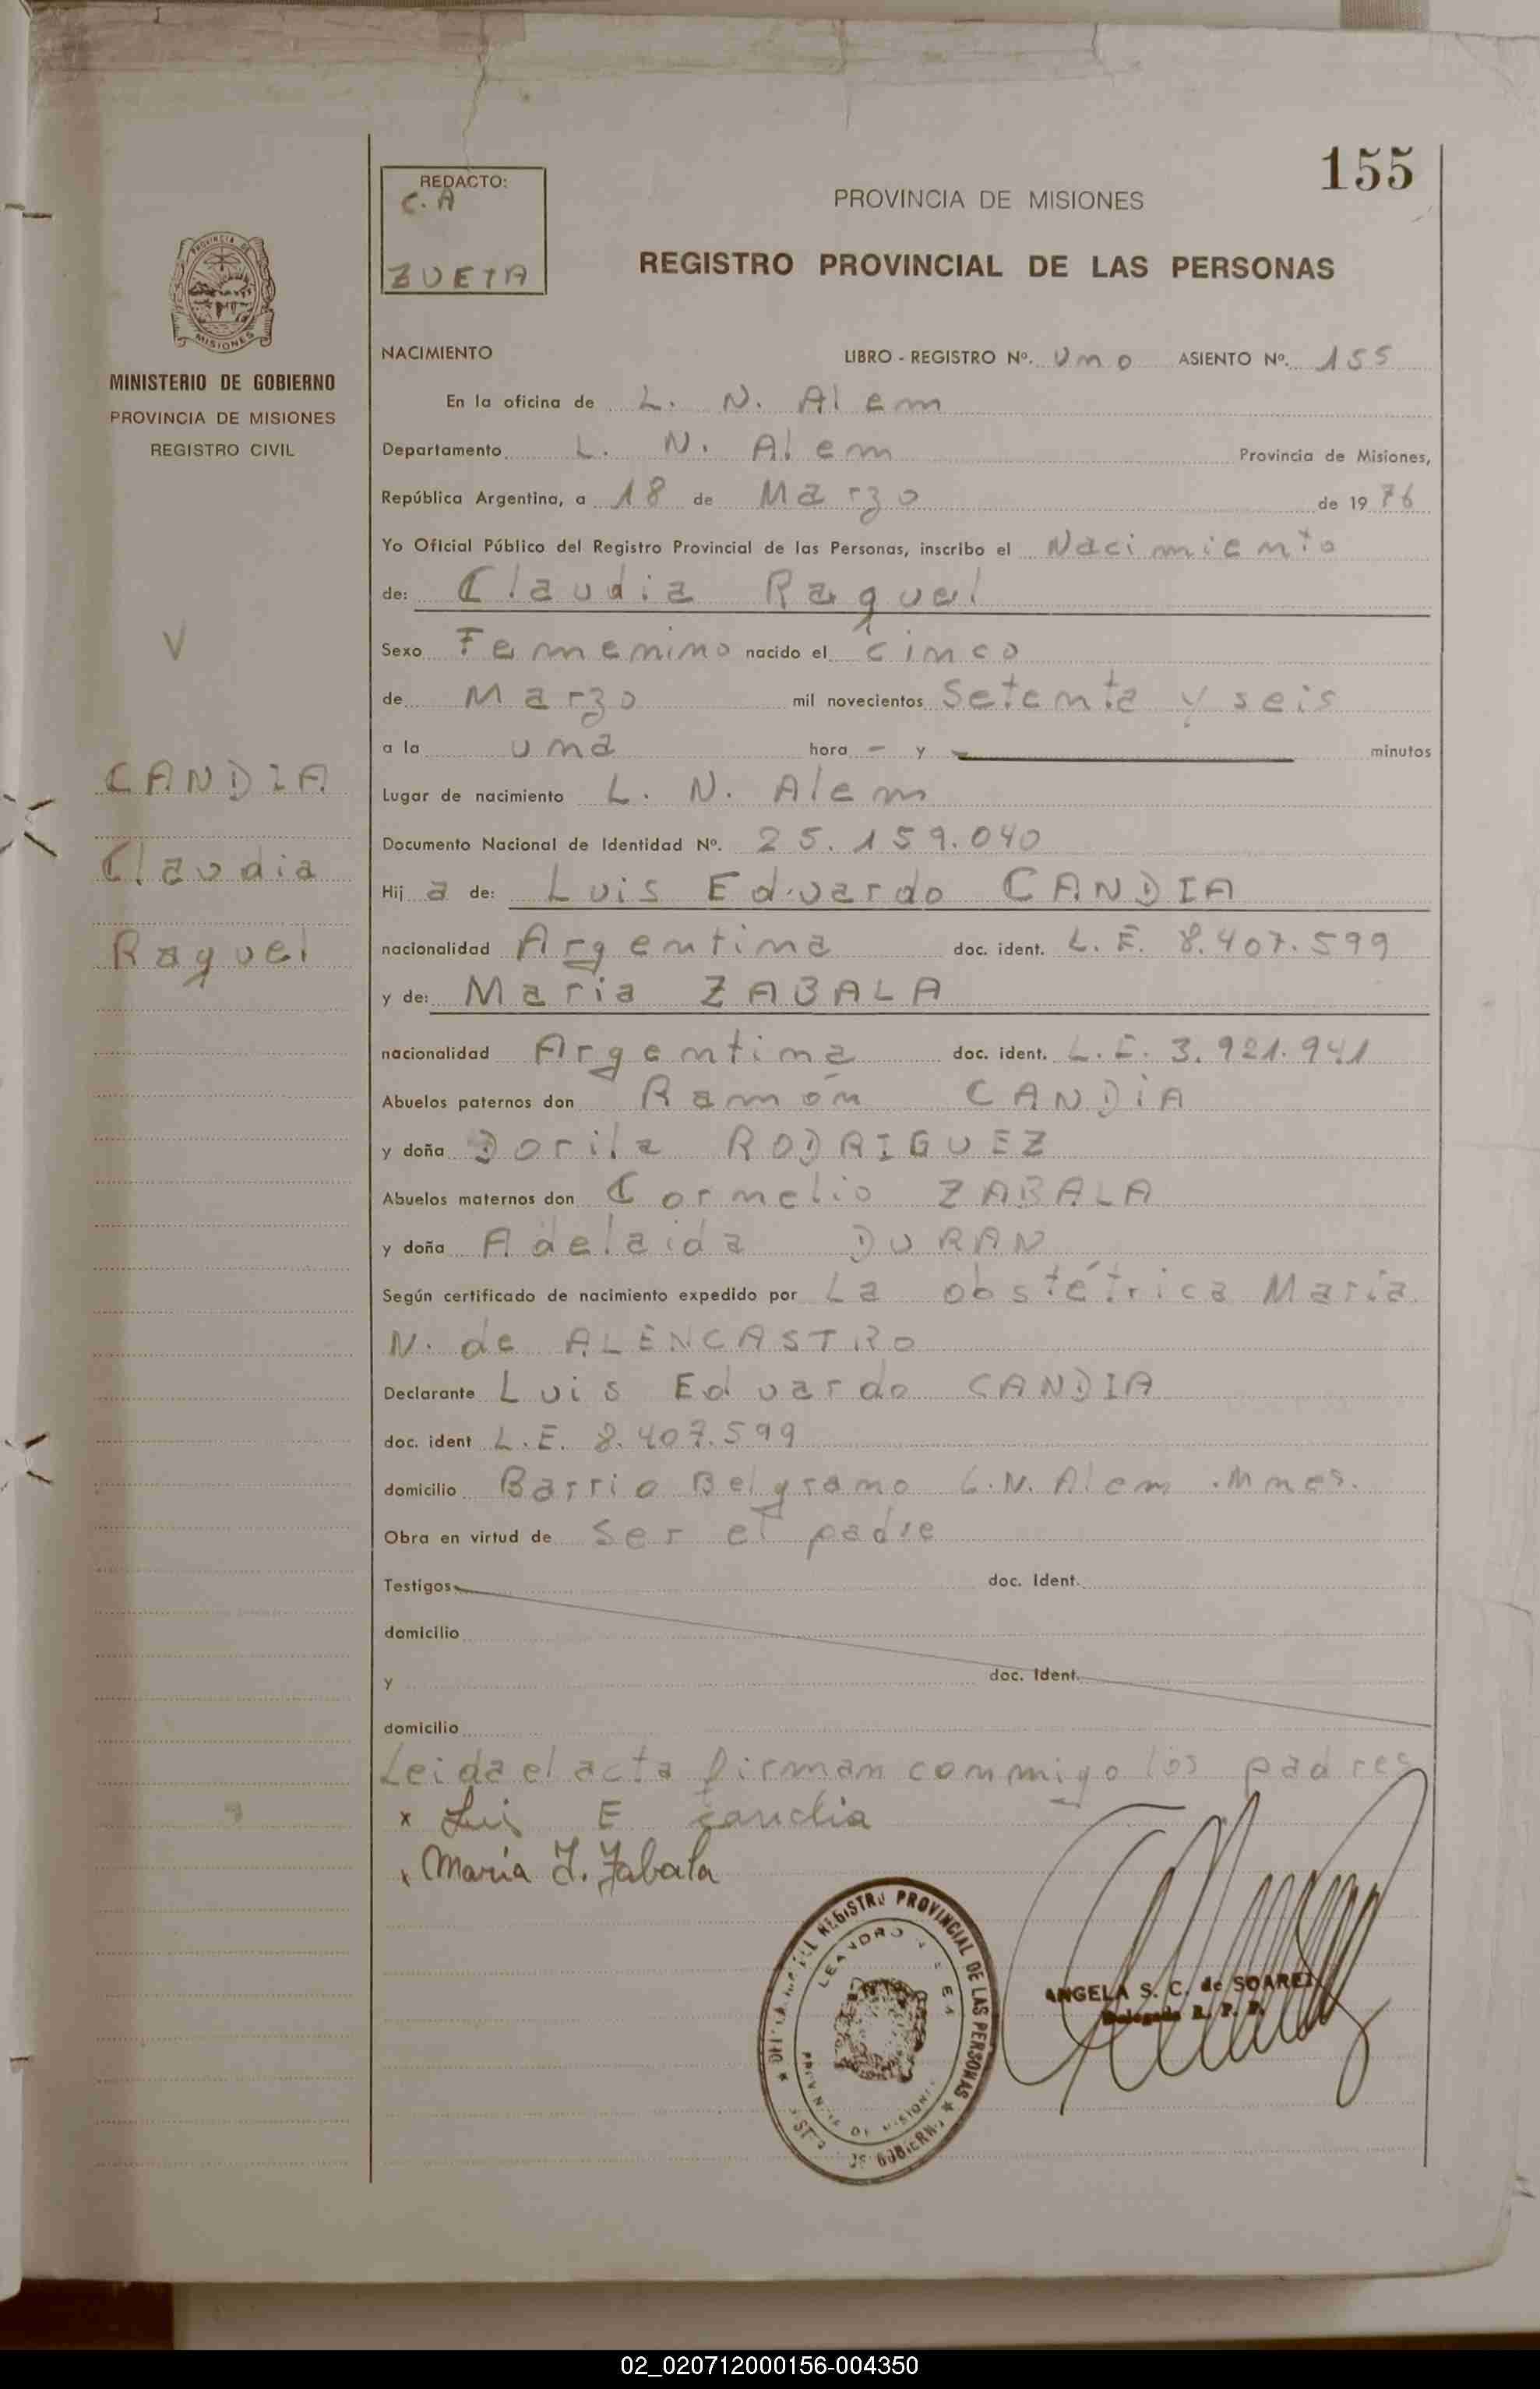 155
REDACTO:
C. A
ZUETA
PROVINCIA DE MISIONES
REGISTRO PROVINCIAL DE LAS PERSONAS
PROVINCIA DE
MISIONES
MINISTERIO DE GOBIERNO
PROVINCIA DE MISIONES
REGISTRO CIVIL
V
CANDIA
Claudia
Raquel
NACIMIENTO LIBRO - REGISTRO Nº. Uno ASIENTO Nº. 155
En la oficina de L. N. Alem
Departamento L. N. Alem Provincia de Misiones,
República Argentina, a 18 de Marzo de 1976
Yo Oficial Público del Registro Provincial de las Personas, inscribo el Nacimiento
de: Claudia Raquel
Sexo Femenino nacido el cinco
de Marzo mil novecientos Setenta y seis
a la una hora - y - minutos
Lugar de nacimiento L. N. Alem
Documento Nacional de Identidad Nº. 25.159.040
Hija de: Luis Eduardo CANDIA
nacionalidad Argentina doc. ident. L.E. 8.407.599
y de: Maria ZABALA
nacionalidad Argentina doc. ident. L.E. 3.921.941
Abuelos paternos don Ramón CANDIA
y doña Dorila RODRIGUEZ
Abuelos maternos don Cornelio ZABALA
y doña Adelaida DURAN
Según certificado de nacimiento expedido por La obstétrica Maria
N. de ALENCASTRO
Declarante Luis Eduardo CANDIA
doc. ident L.E. 8.407.599
domicilio Barrio Belgrano L.N. Alem .Mnes.
Obra en virtud de ser el padre
Testigos doc. Ident.
domicilio
y doc. Ident.
domicilio
Leida el acta firman conmigo los padres
x Luis E Candia
x Maria I. Zabala
REGISTRO PROVINCIAL DE LAS PERSONAS
LEANDRO N
PROVINCIA DE MISIONES
DE GOBIERNO
ANGELA S. C. de SOAREZ
Delegada R. P. P.
02_020712000156-004350